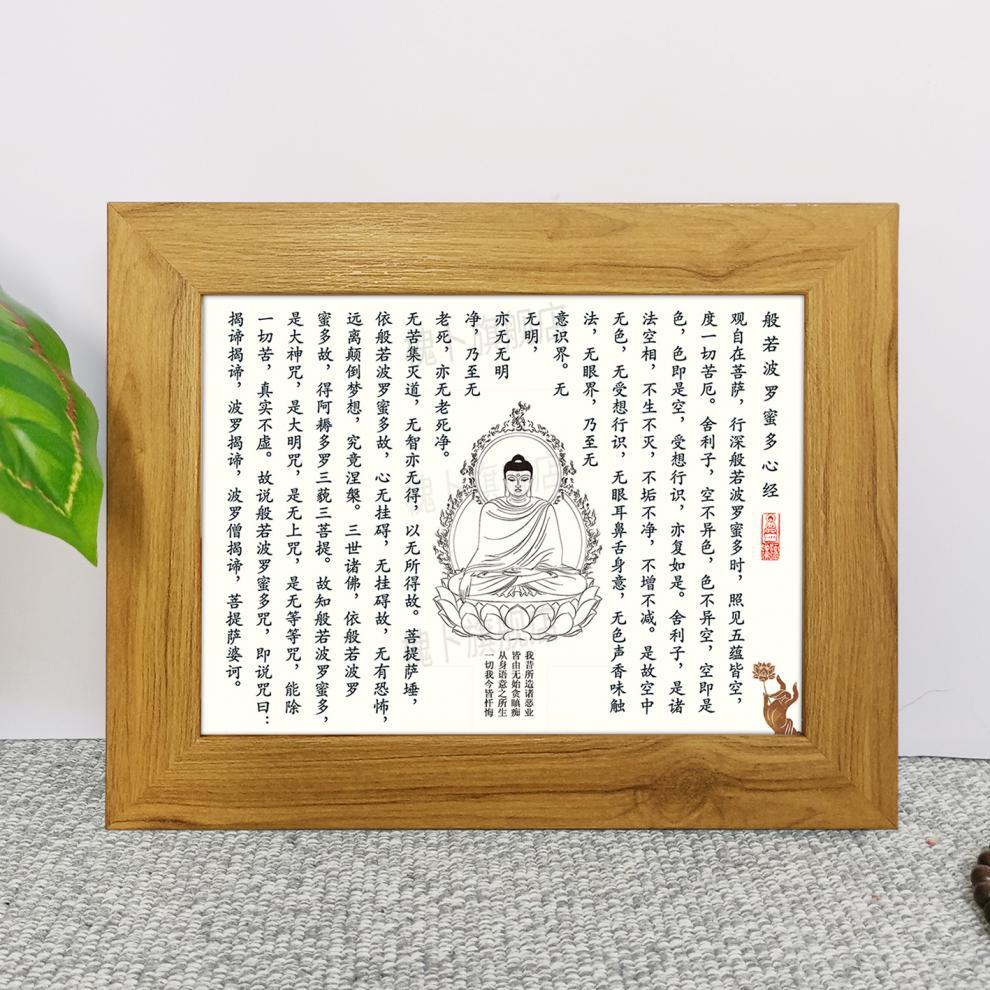 般若波罗蜜多心经
观自在菩萨，行深般若波罗蜜多时，照见五蕴皆空，
度一切苦厄。舍利子，空不异色，色不异空，空即是
色，色即是空，受想行识，亦复如是。舍利子，是诸
法空相，不生不灭，不垢不净，不增不减。是故空中
无色，无受想行识，无眼耳鼻舌身意，无色声香味触
法，无眼界，乃至无
意识界。无
无明，
亦无无明
净，乃至无
老死，亦无老死净。
无苦集灭道，无智亦无得，以无所得故。菩提萨埵，
依般若波罗蜜多故，心无挂碍，无挂碍故，无有恐怖，
远离颠倒梦想，究竟涅槃。三世诸佛，依般若波罗
蜜多故，得阿耨多罗三藐三菩提。故知般若波罗蜜多，
是大神咒，是大明咒，是无上咒，是无等等咒，能除
一切苦，真实不虚。故说般若波罗蜜多咒，即说咒曰：
揭谛揭谛，波罗揭谛，波罗僧揭谛，菩提萨婆诃。
我昔所造诸恶业
皆由无始贪瞋痴
从身语意之所生
一切我今皆忏悔